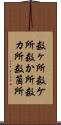 数ヶ所数ケ
所数か所数
カ所数箇所